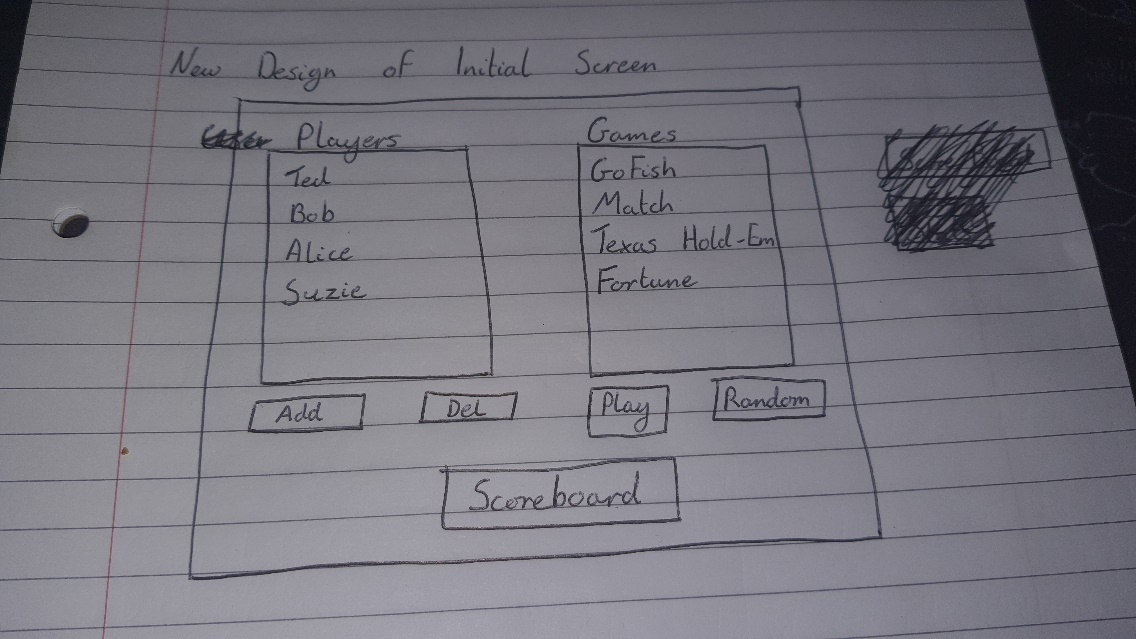 New Design of Initial Screen
Players
Ted
Bob
Alice
Suzie
Add
Del
Games
GoFish
Match
Texas Hold-Em
Fortune
Play
Random
Scoreboard